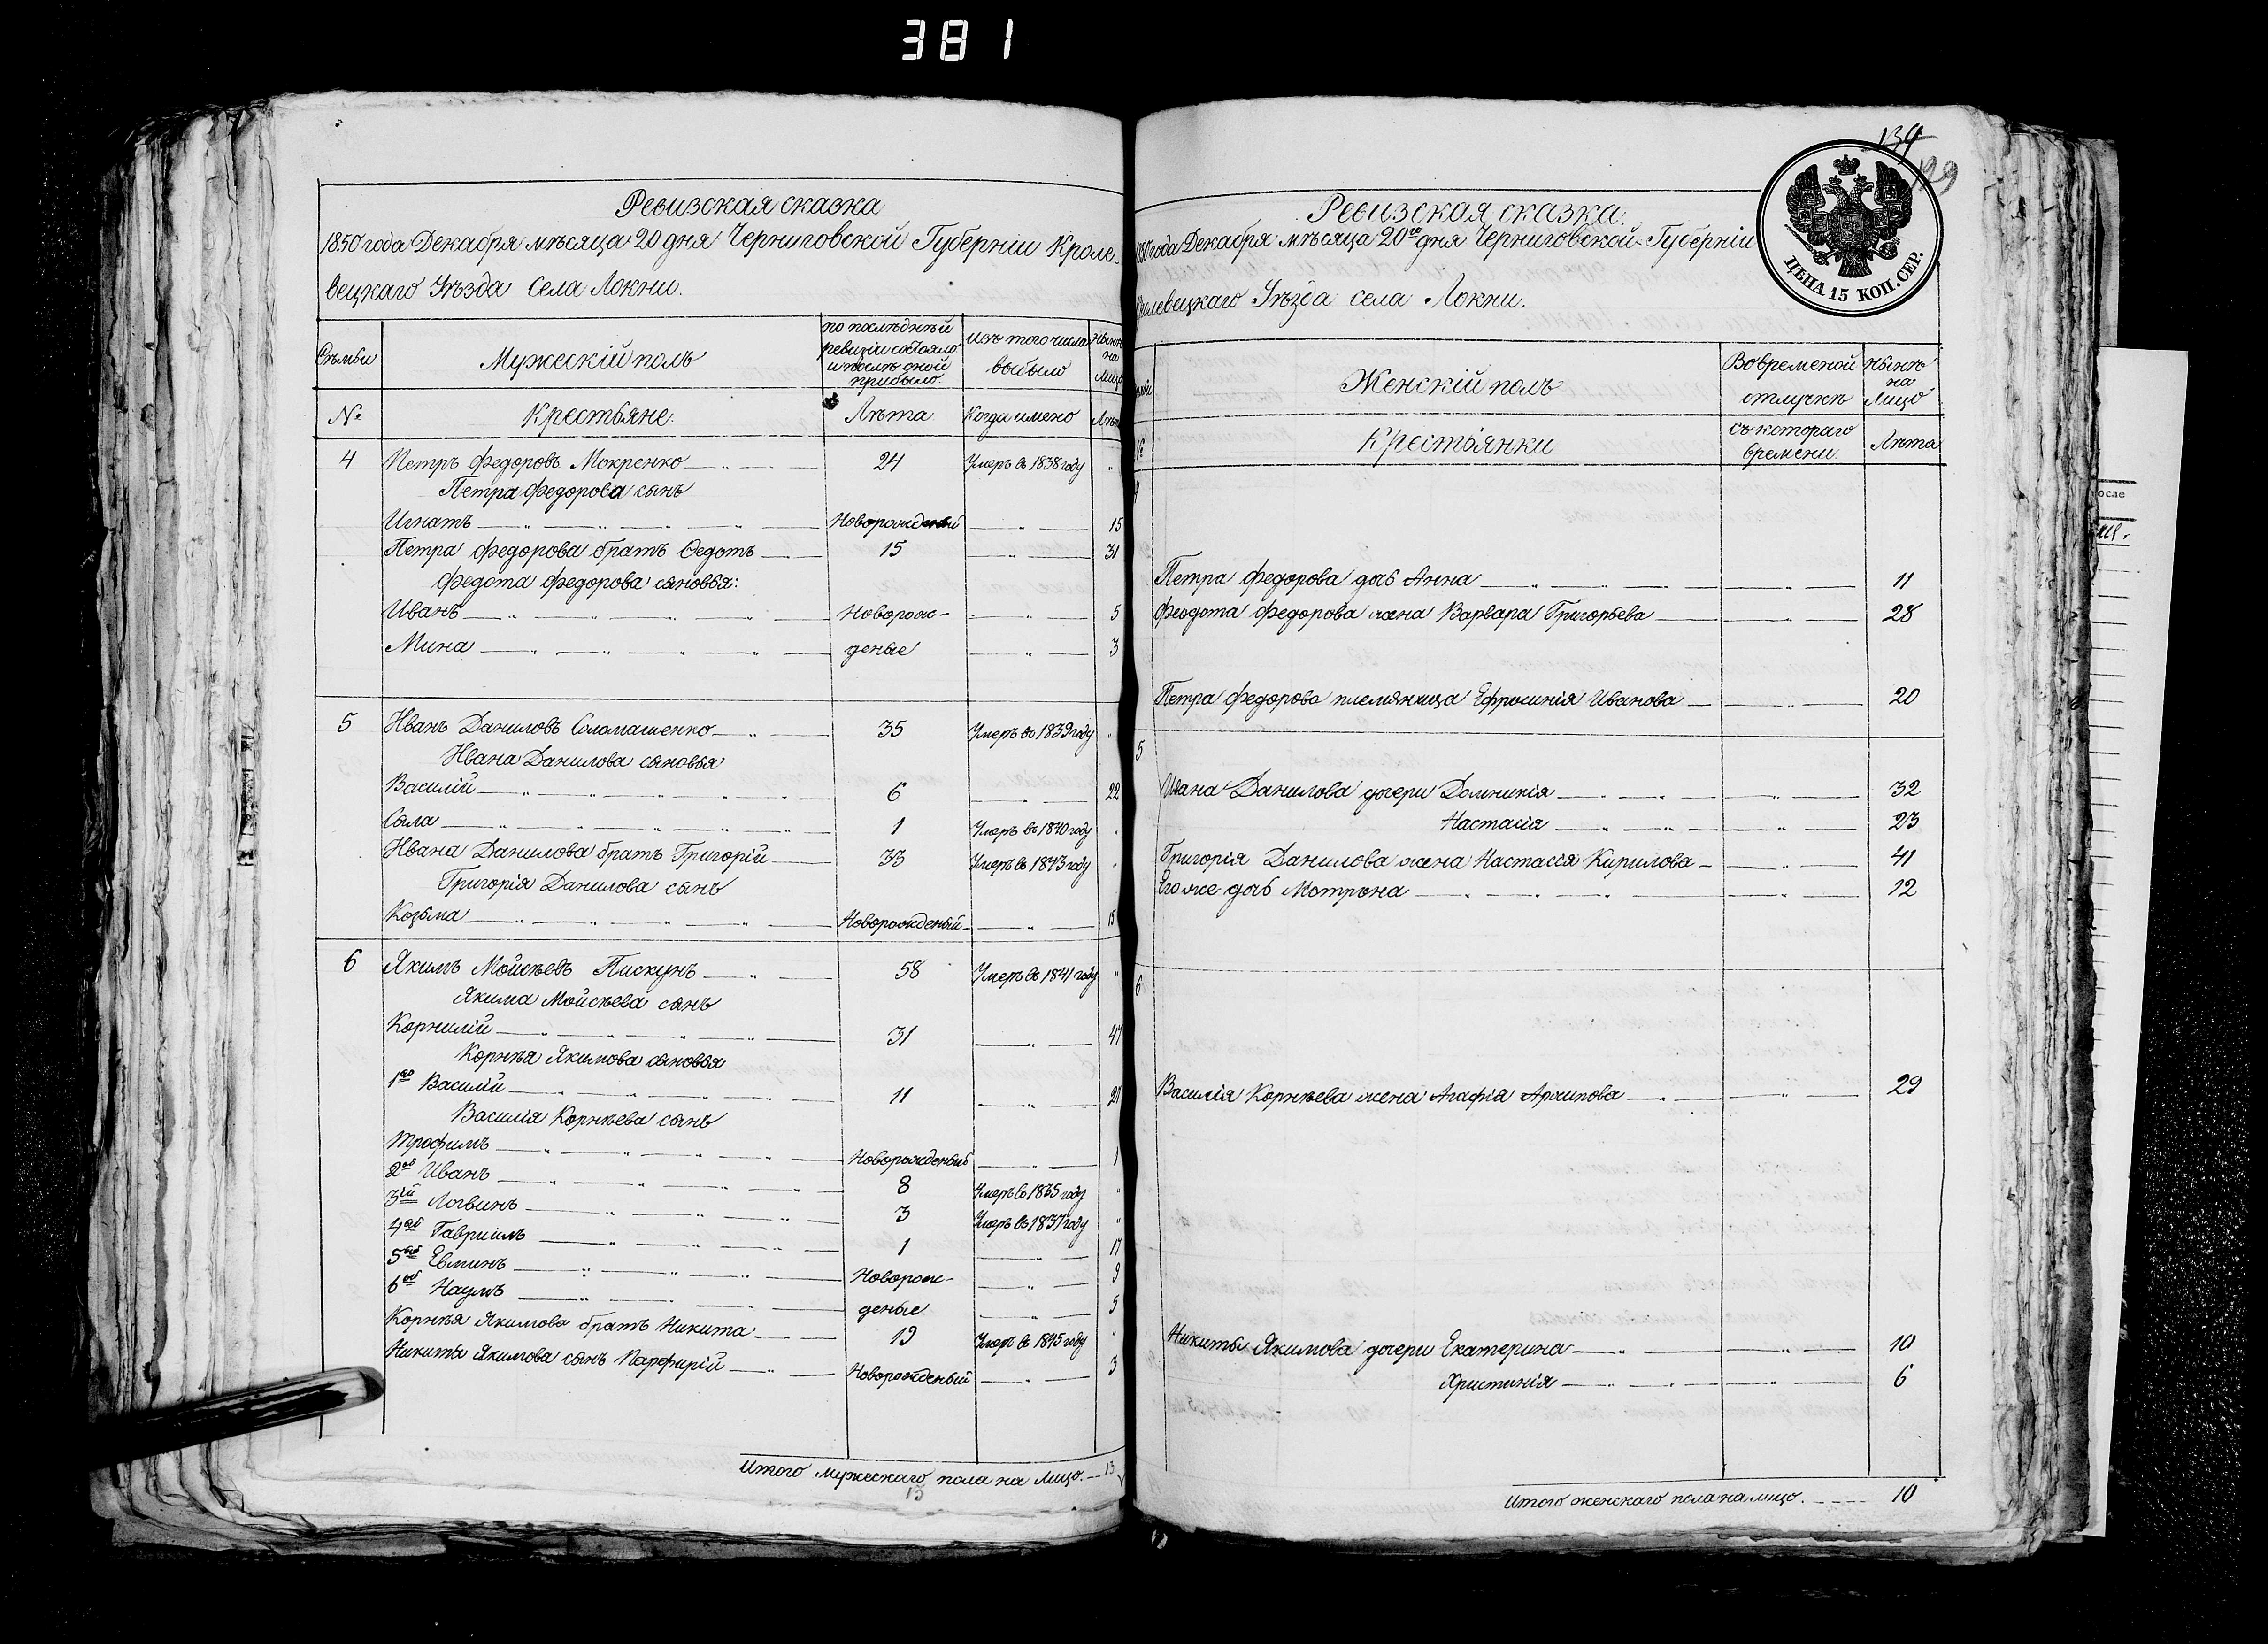 381
Ревизская сказка
1850 года Декабря мѣсяца 20 дня Черниговской Губерніи Кроле-
вецкаго Уѣзда Села Локни.
Сѣмьи
Мужескій полъ
по послѣднѣй ревизіи состояло и послѣ оной прибыло.
Изъ того числа выбыло
Нынѣ на лицо
№
Крестьяне.
Лѣта
Когда имено
Лѣта
4 Петръ Федоровъ Мокренко 24 Умеръ въ 1838 году
Петра Федорова сынъ
Игнатъ Новорожденый 15
Петра Федорова братъ Ѳедотъ 15 31
Федота Федорова сыновья:
Иванъ Новорож- 5
Мина деные 3
5 Иванъ Даниловъ Соломашенко 35 Умеръ во 1839 году
Ивана Данилова сыновья
Василій 6 22
Сыла 1 Умеръ въ 1840 году
Ивана Данилова братъ Григорій 33 Умеръ въ 1843 году
Григорія Данилова сынъ
Козьма Новорожденый 15
6 Якимъ Мойсѣевъ Пискунъ 58 Умеръ въ 1841 году
Якима Мойсѣева сынъ
Корнилій 31 47
Корнѣя Якимова сыновья
1ый Василій 11 27
Василія Корнѣева сынъ
Трофимъ Новорожденый 1
2ой Иванъ 8 Умеръ въ 1835 году
3ій Логвинъ 3 Умеръ въ 1837 году
4ый Гавріилъ 1 17
5ый Евминъ Новорож- 9
6ой Наумъ деные 5
Корнѣя Якимова братъ Никита 19 Умеръ въ 1845 году
Никиты Якимова сынъ Парфирій Новорожденый 3
Итого мужескаго пола на лицо. 13
13
134
129
ЦѢНА 15 КОП. СЕР.
Ревизская сказка.
1850 года Декабря мѣсяца 20го дня Черниговской Губерніи
левецкаго Уѣзда села Локни.
Женскій полъ
Во временой отлучкѣ
Нынѣ на Лицо
№
Крестьянки
съ котораго времени.
Лѣта
Петра Федорова дочь Анна 11
Феодота Федорова жена Варвара Григорьева 28
Петра Федорова племянница Ефросинія Иванова 20
5
Ивана Данилова дочери Домникія 32
Настасія 23
Григорія Данилова жена Настасія Кирилова 41
Его же дочь Мотрона 12
6
Василія Корнѣева жена Агафія Архипова 29
Никиты Якимова дочери Екатерина 10
Христинія 6
Итого женскаго пола на лицо. 10
осле